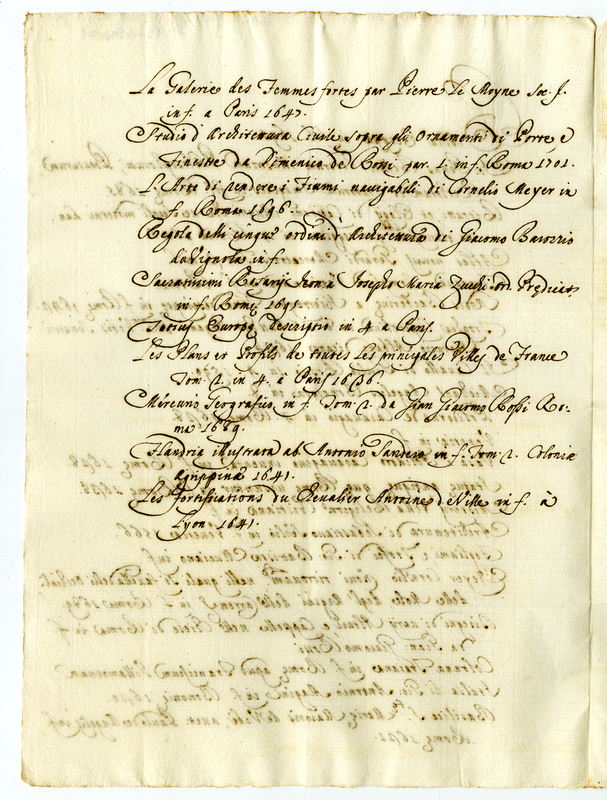 La Galerie des Femmes fortes par Pierre Le Moyne Soc. J.
in f. a Paris 1647.
Studio d'Architettura Civile sopra gli Ornamenti di Porte e
Finestre da Domenico de Rossi par. 1. in f. Roma 1701.
L'Arte di rendere i Fiumi navigabili di Cornelio Meyer in
f. Roma 1696.
Regola delli cinque ordini d'Architettura di Giacomo Barozzio
da Vignola in f.
Sacratissimi Rosarij Josepho Maria Zucchi ord. Prędicat.
in f. Romę 1691.
Totius Europę descriptio in 4. a Paris.
Les Plans et Profils de toutes les principales Villes de France
Tom. 2. in 4. à Paris 1636.
Mercurio Geografico in f. Tom. 2. da Gian Giacomo Rossi Ro-
ma 1689.
Flandria illustrata ab Antonio Sandero in f. Tom. 2. Coloniæ
Agrippinæ 1641.
Les Fortifications du Chevalier Antoine de Ville in f. à
Lyon 1641.